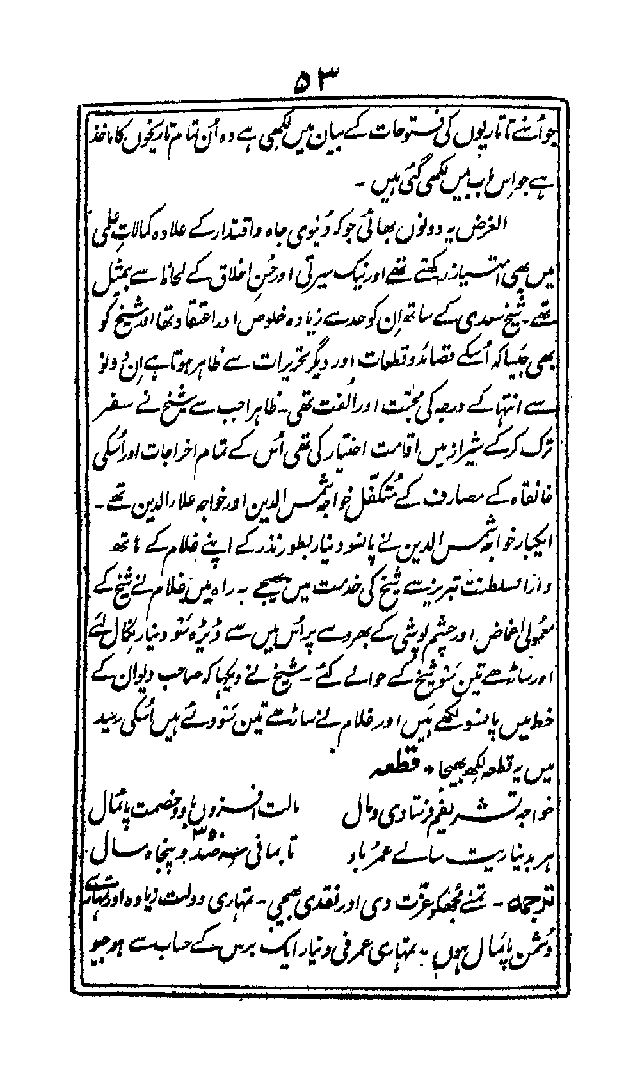 ۵۳
جو اُسنے تاتاریوں کی فتوحات کے بیان میں لکھی ہے وہ اُن تمام تاریخوں کا ماخذ
ہے جو اس باب میں لکھی گئی ہیں -
الغرض یہ دونوں بھائی جو کہ دُنیوی جاہ و اقتدار کے علاوہ کمالاتِ علمی
میں بھی امتیاز رکھتے تھے اور نیک سیرتی اور حُسنِ اخلاق کے لحاظ سے بیمثیل
تھے - شیخ سعدی کے ساتھ اِن کو حد سے زیادہ خلوص اور اعتقاد تھا اور شیخ کو
بھی جیسا کہ اُسکے قصائد و قطعات اور دیگر تحریرات سے ظاہر ہوتا ہے اِن دونو
سے انتہا کے درجہ کی محبّت اور اُلفت تھی - ظاہرا جب سے شیخ نے سفر
ترک کر کے شیراز میں اقامت اختیار کی تھی اُس کے تمام اخراجات اور اُسکی
خانقاہ کے مصارف کے مُتکفّل خواجہ شمس الدین اور خواجہ علاء الدین تھے -
ایکبار خواجہ شمس الدین نے پانسو دینار بطور نذر کے اپنے غلام کے ہاتھ
دار السلطنت تبریز سے شیخ کی خدمت میں بھیجے - راہ میں غلام نے شیخ کے
معمولی اغماض اور چشم پوشی کے بھروسے پر اُس میں سے ڈیڑہ سَو دینار نکال لئے
اور ساڑھے تین سَو شیخ کے حوالے کئے - شیخ نے دیکھا کہ صاحب دیوان کے
خط میں پانسو لکھے ہیں اور غلام نے ساڑھے تین سَو دئے ہیں اُسکی رسید
میں یہ قطعہ لکھ بھیجا * قطعہ
خواجہ تشریفم فرستادی و مال مالت افزوں باد و خصمت پائمال
ہر بدیناریت سالے عمر باد تا بمانی سہ صد و پنجاہ سال ۳۵۰
ترجمہ - تمنے مُجھکو عزّت دی اور نقدی بھیجی - تمہاری دولت زیادہ اور تمہارے
دُشمن پائمال ہوں - تمہاری عمر فی دینار ایک برس کے حساب سے ہو جیو